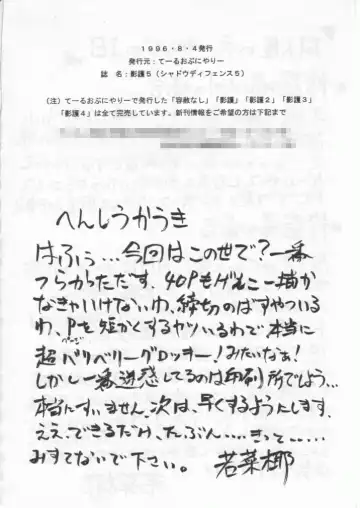 1996・8・4発行
発行元：てーるおぶにやりー
誌　名：影護５（シャドウディフェンス５）
（注）てーるおぶにやりーで発行した「容赦なし」「影護」「影護２」「影護３」
「影護４」は全て完売しています。新刊情報をご希望の方は下記まで
へんしうかうき
はふぅ...今回はこの世で？一番
つらかっただす。40Pもげんこー描か
なきゃいけないわ、締切のばすやついる
わ、Pを短かくするヤツいるわで本当に
ページ
超ベリベリーグロッキー！みたいなぁ！
しかし一番迷惑してるのは印刷所でしょう...
本当にすいません。次は、早くするようにします。
ええ、できるだけ、たぶん....きっと.....
みすてないで下さい。　若菜椰